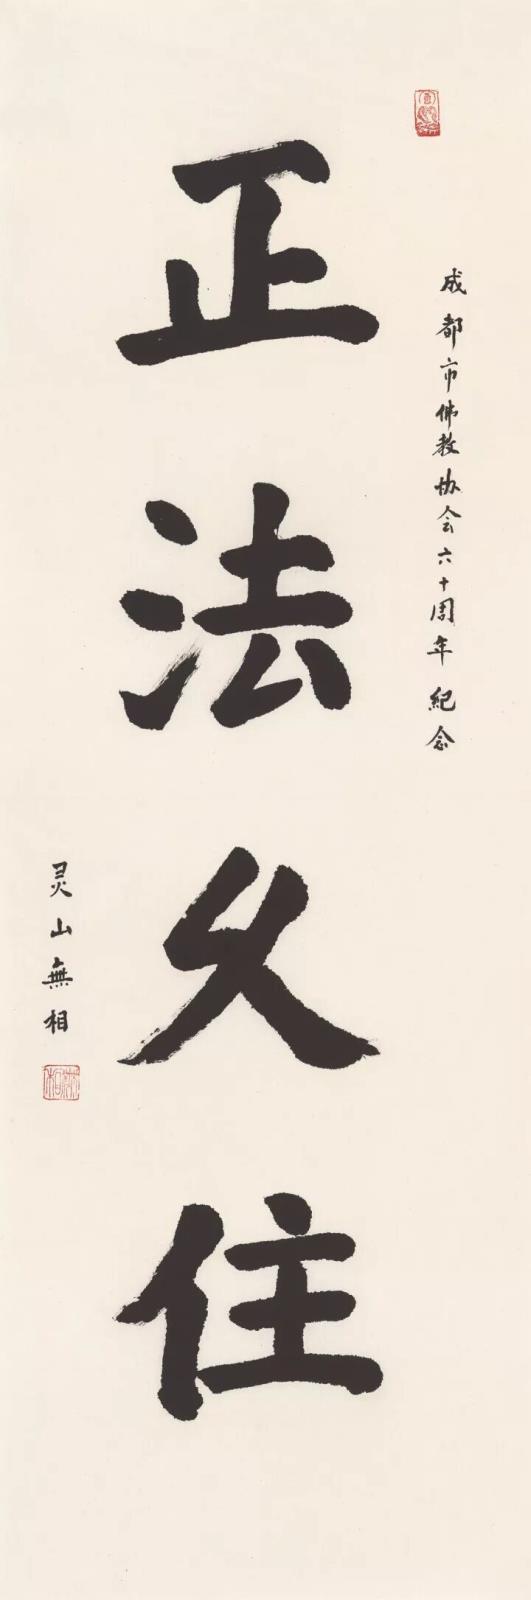 成都市佛教协会六十周年纪念
正法久住
灵山無相
無相